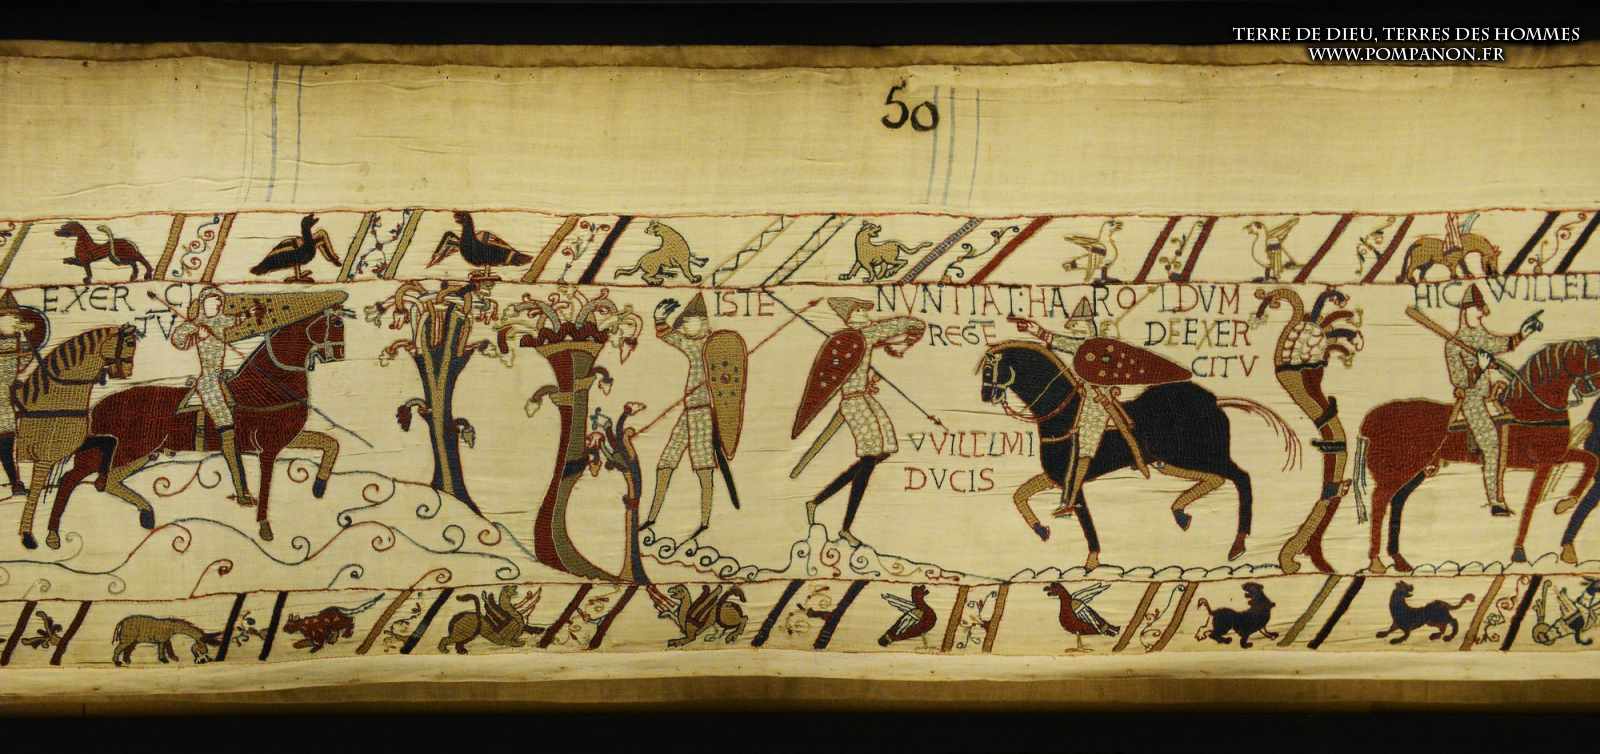 TERRE DE DIEU, TERRES DES HOMMES
WWW.POMPANON.FR
50
EXERCI
TV
ISTE NVNTIAT:HAROLDVM
REGE DEEXER
CITV
VVILLELMI
DVCIS
HIC WILLEL